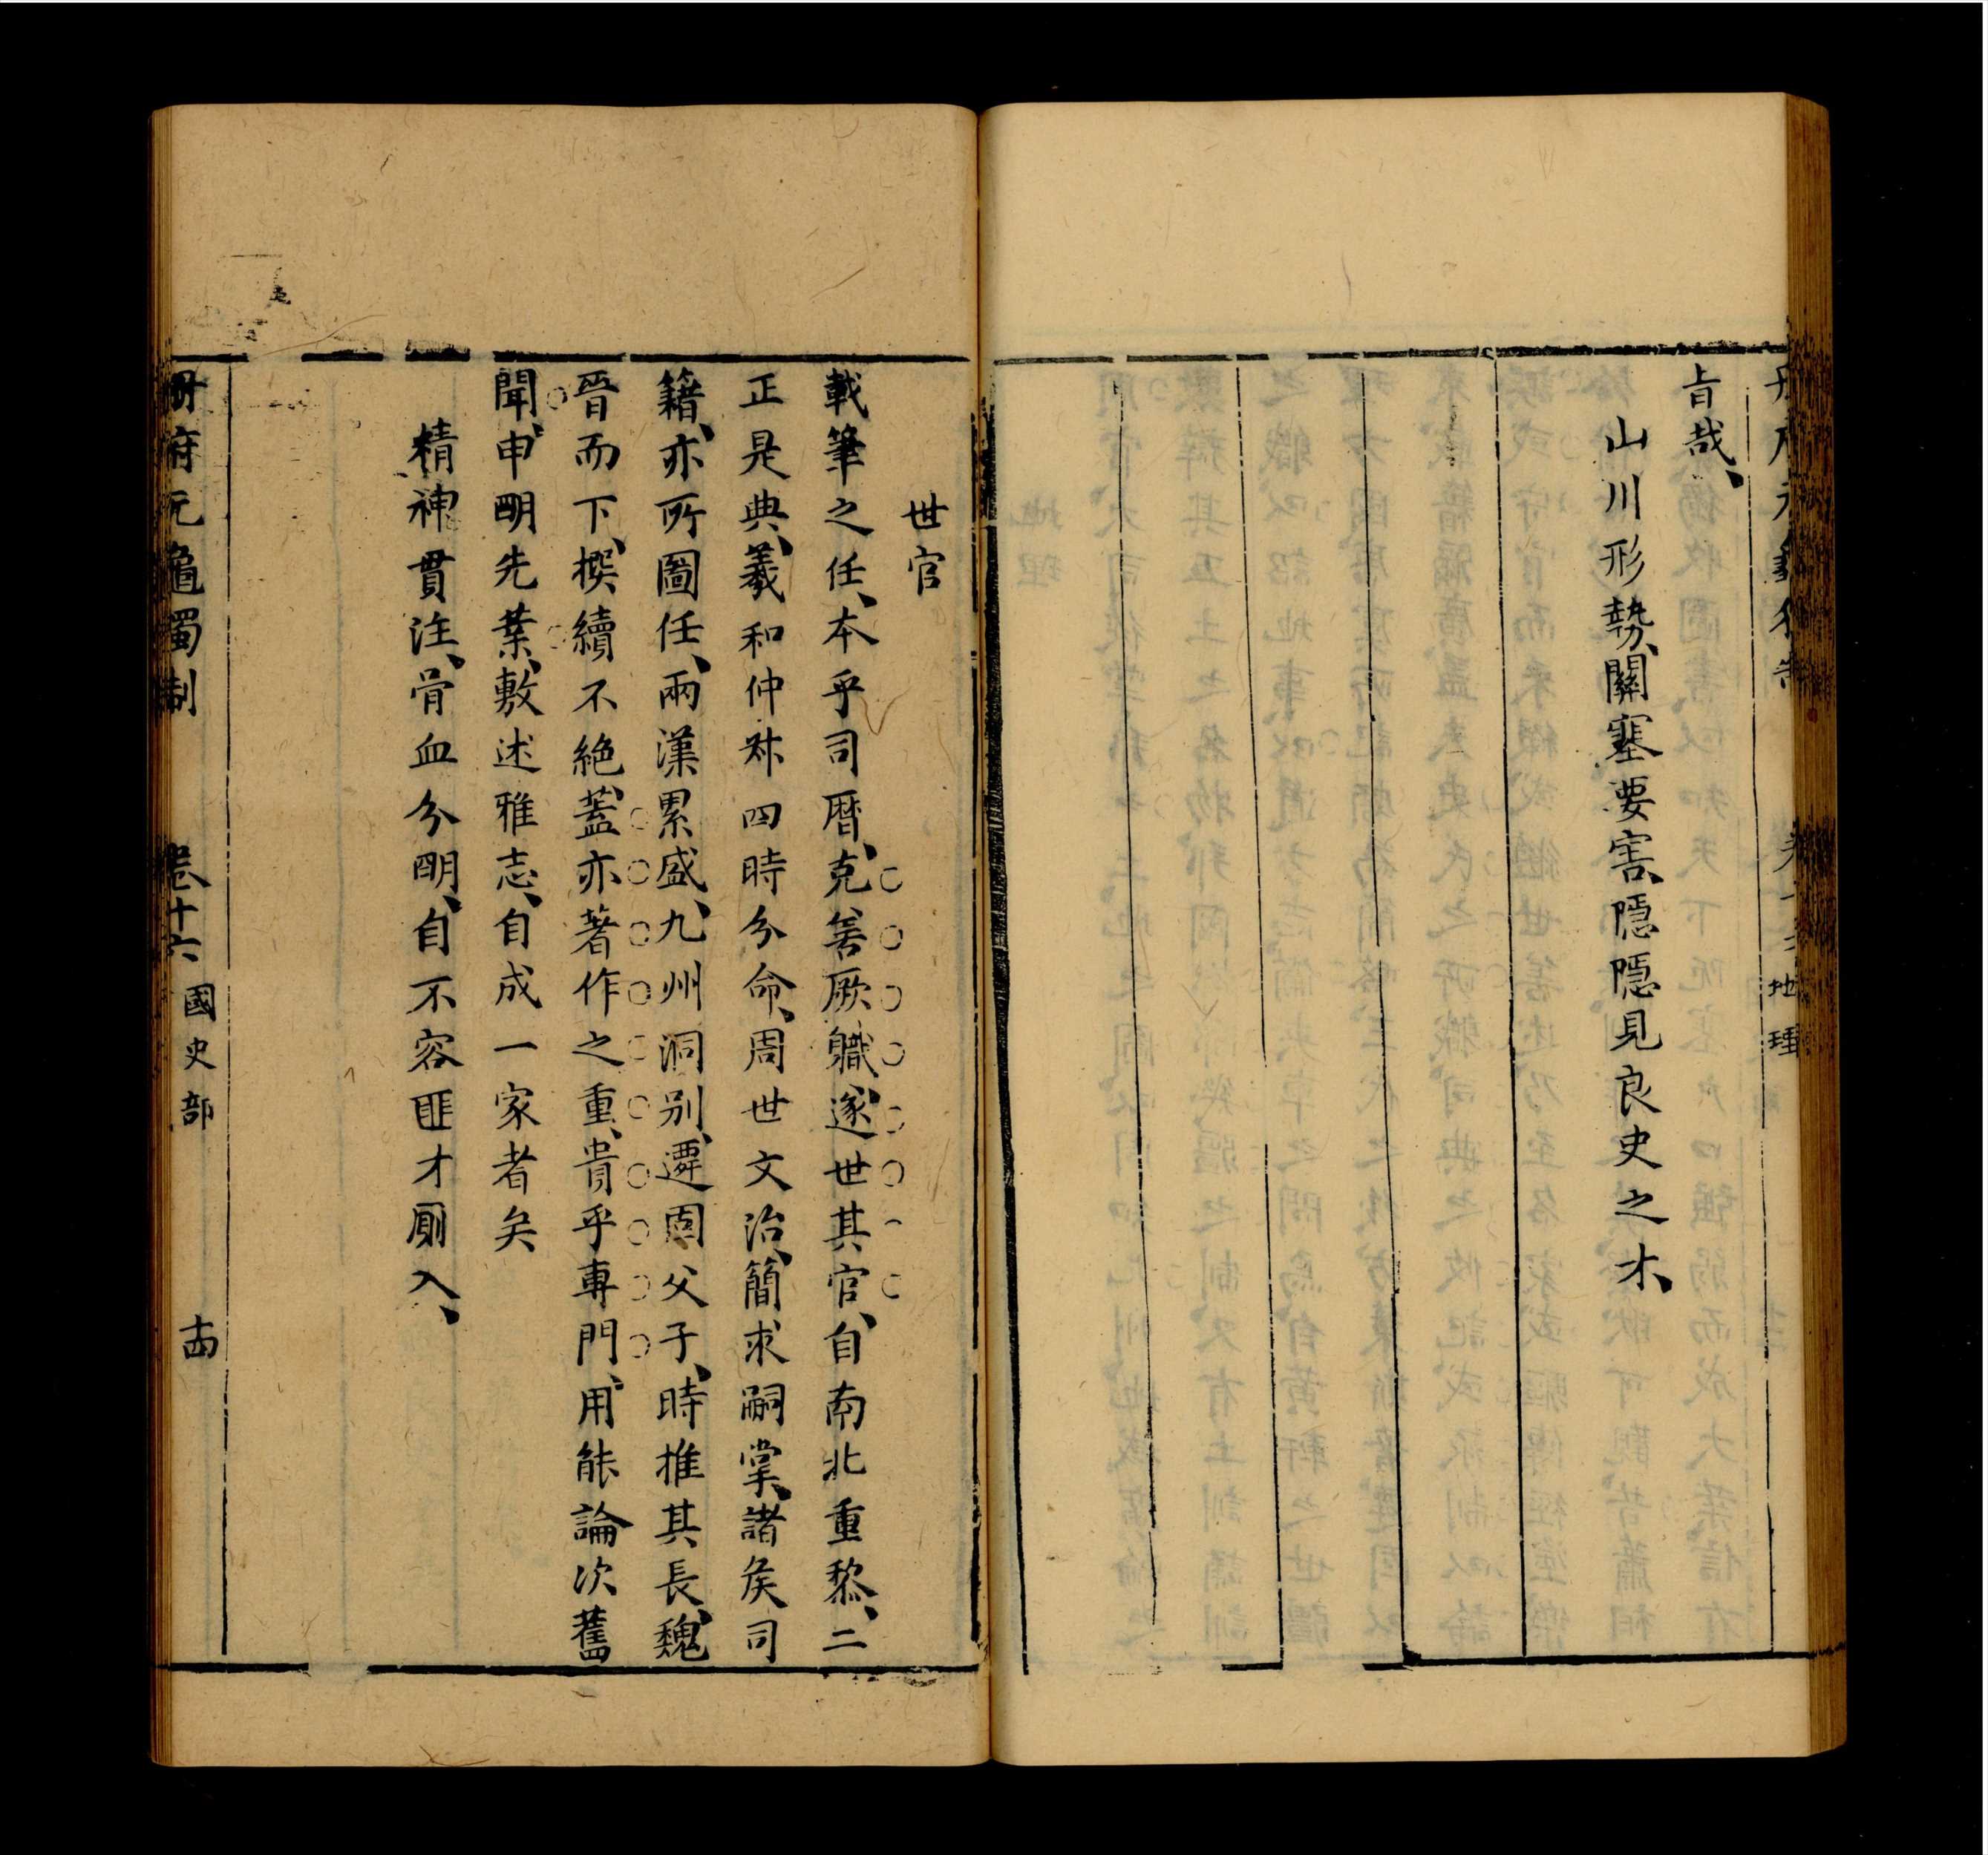 旨哉、
山川形勢、關塞要害、隱隱見良史之才、
地理
世官
載筆之任、本乎司曆、克善厥職、遂世其官、自南北重黎、二
正是典、羲和仲叔四時分命、周世文治、簡求嗣掌、諸侯司
籍、亦所圖任、兩漢累盛、九州洞別、遷固父子、時推其長、魏
晉而下、撰續不絕、蓋亦著作之重、貴乎專門、用能論次舊
聞、申明先業、敷述雅志、自成一家者矣
精神貫注、骨血分明、自不容匪才厠入、
冊府元龜獨制 卷十六 國史部 十四